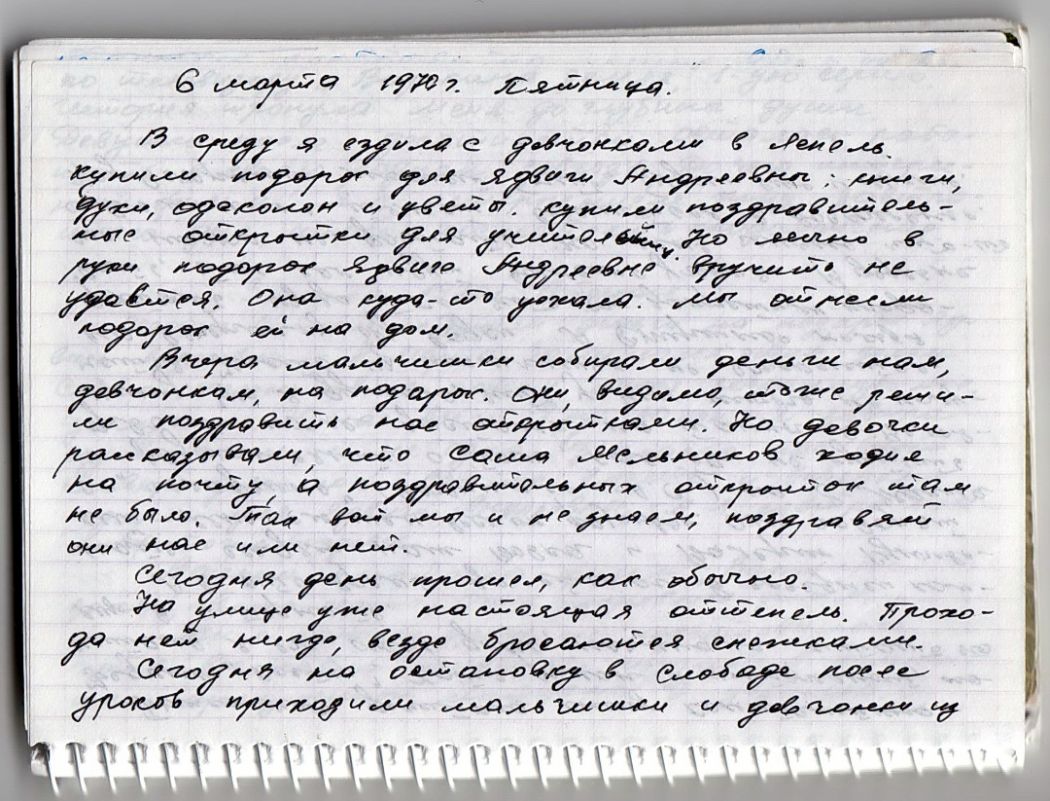 6 марта 1970г. Пятница.
В среду я ездила с девчонками в Лепель.
Купили подарок для Ядвиги Андреевны: книги,
духи, одеколон и цветы. Купили поздравитель-
ные открытки для учителей. Но лично в
руки подарок Ядвиге Андреевне вручить не
удастся. Она куда-то уехала. Мы отнесли
подарок ей на дом.
Вчера мальчишки собирали деньги нам,
девчонкам, на подарок. Они, видимо, тоже реши-
ли поздравить нас открытками. Но девочки
рассказывали, что Саша Мельников ходил
на почту, а поздравительных открыток там
не было. Так вот мы и не знаем, поздравят
они нас или нет.
Сегодня день прошел, как обычно.
На улице уже настоящая оттепель. Прохо-
да нет нигде, везде бросаются снежками.
Сегодня на остановку в Слободе после
уроков приходили мальчишки и девчонки из